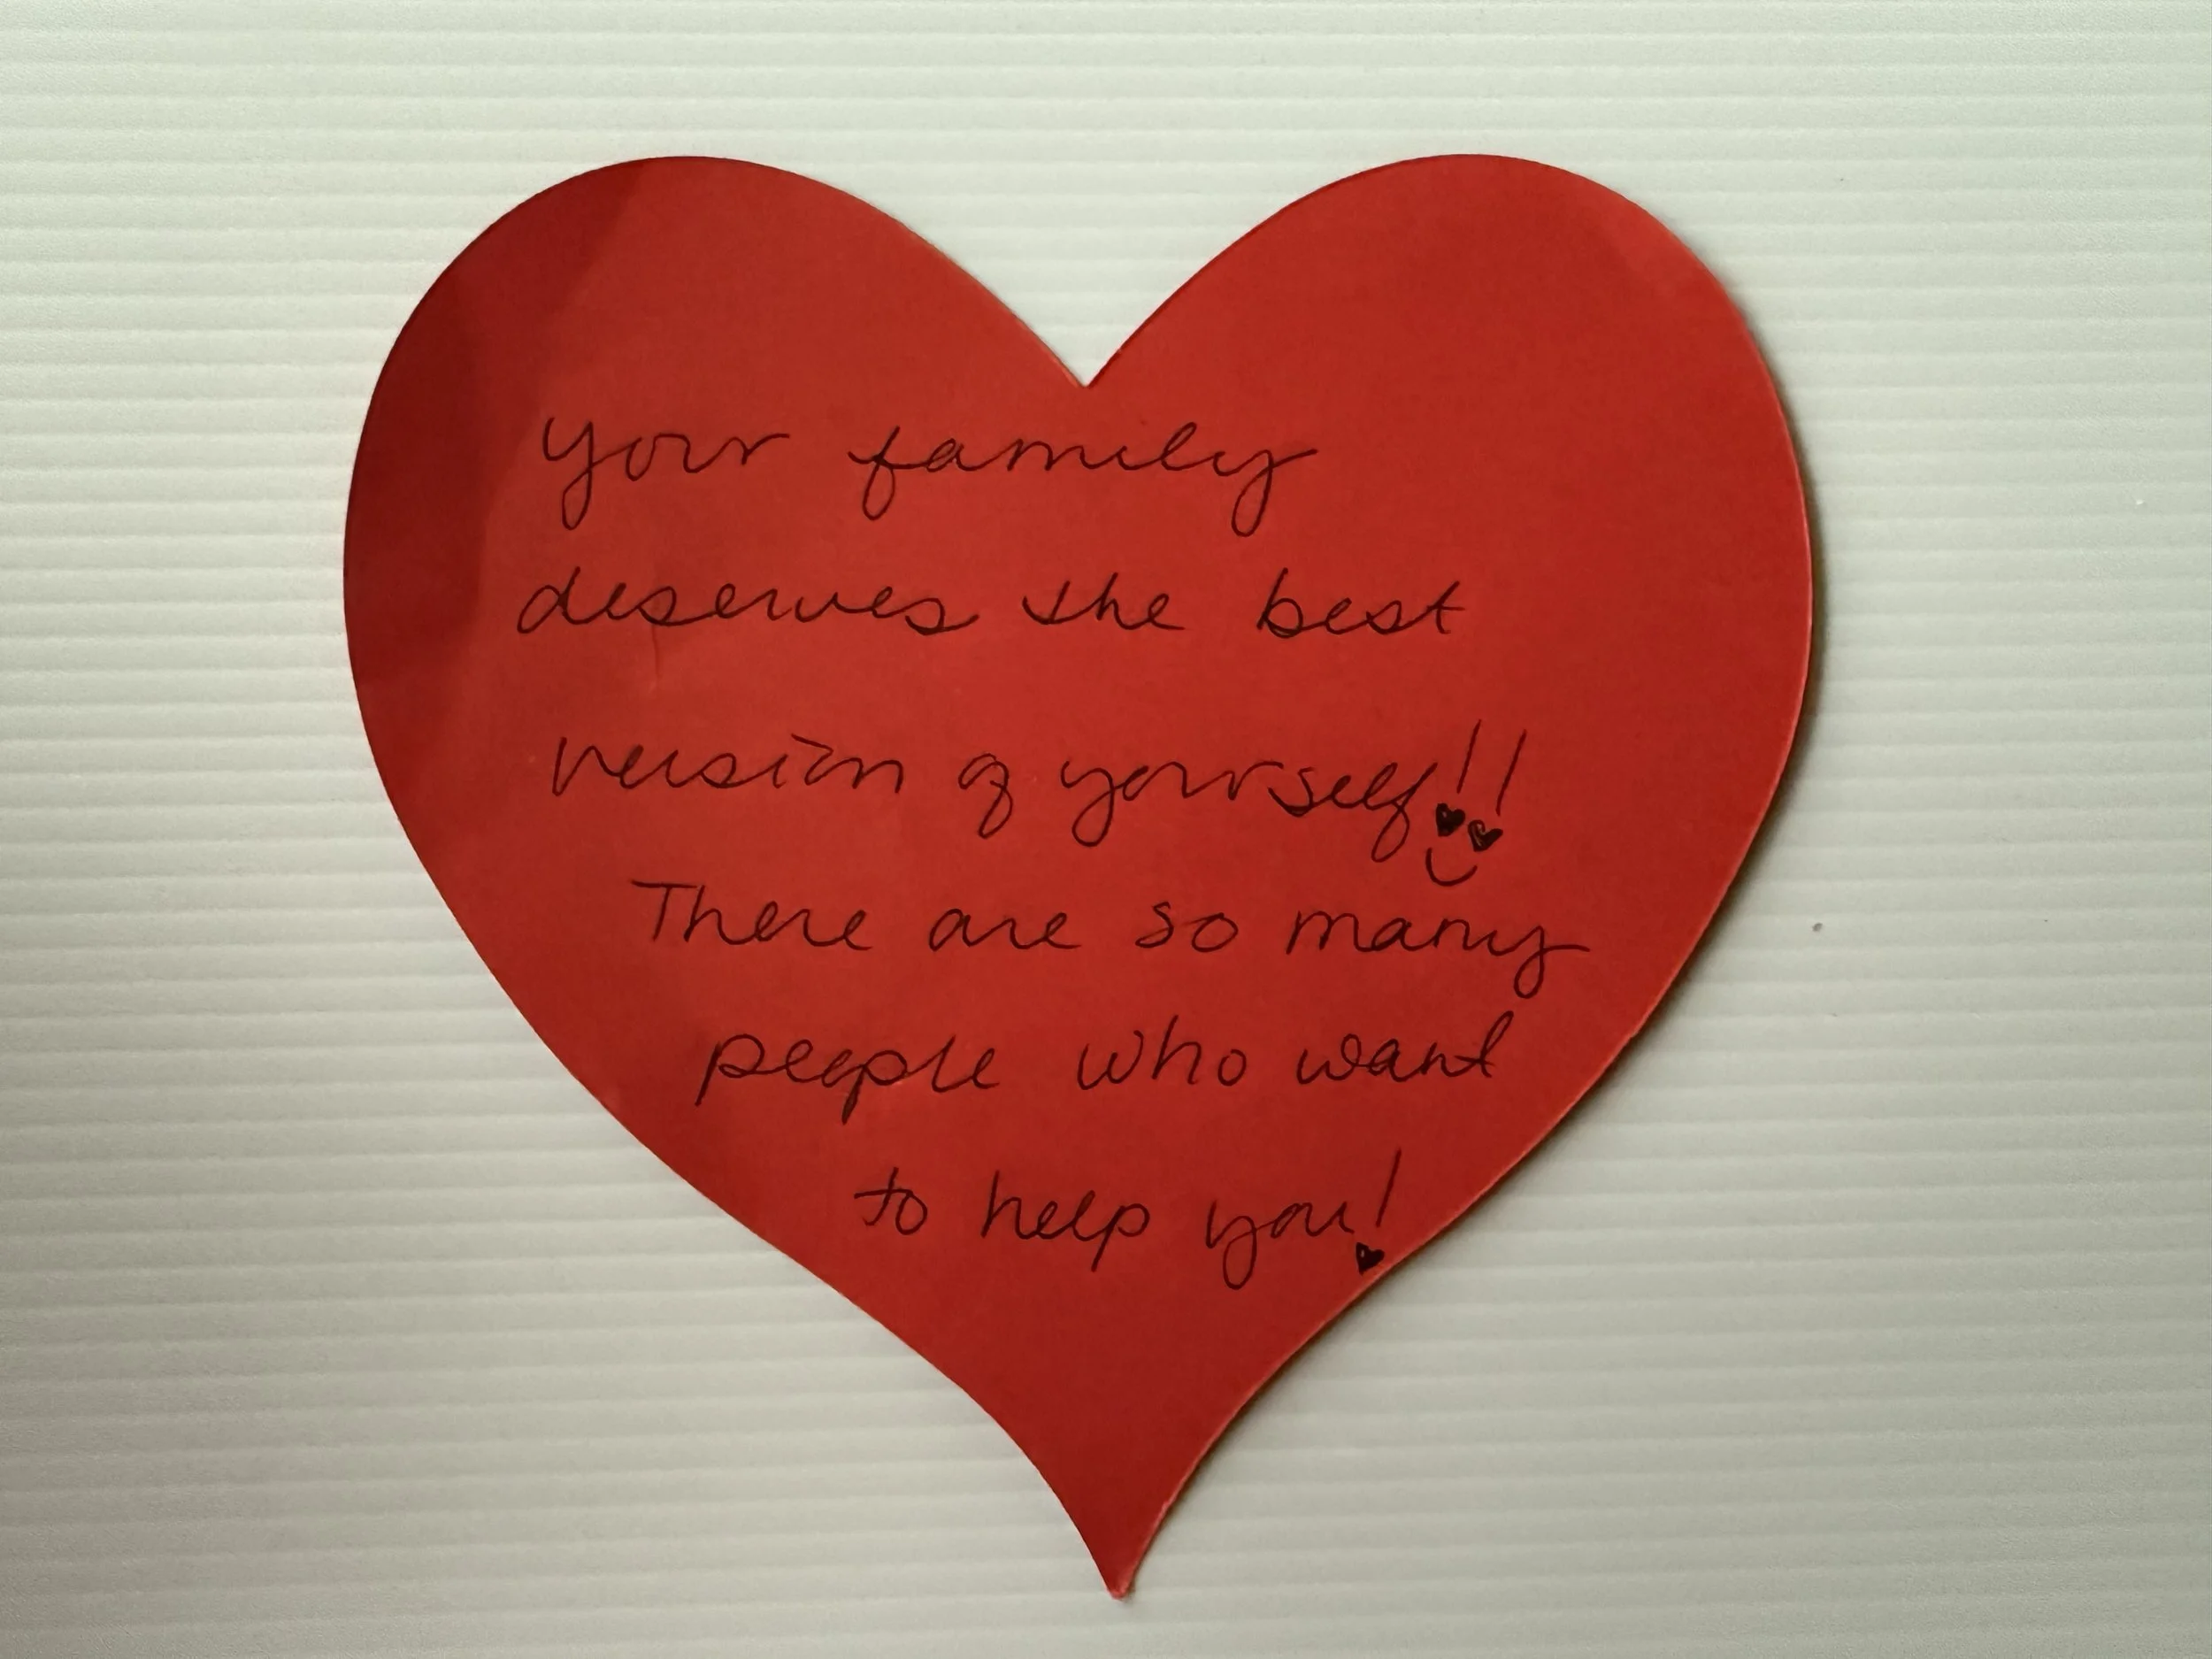 your family
deserves the best
version of yourself!!
There are so many
people who want
to help you!